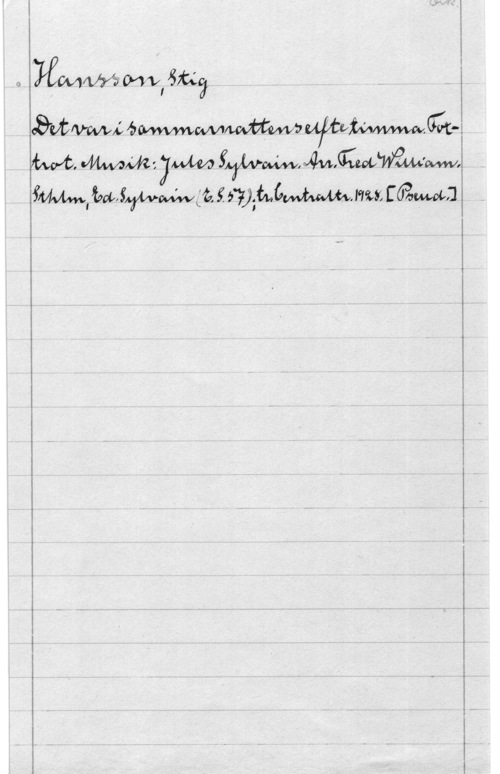 Hansson, Stig
Det var i sommarnattens elfte timma. Fox-
trot. Musik: Jules Sylvain. Arr. Fred William.
Sthlm, Ed. Sylvain (E.S.57); tr. Centraltr. 1928. [Pseud.]